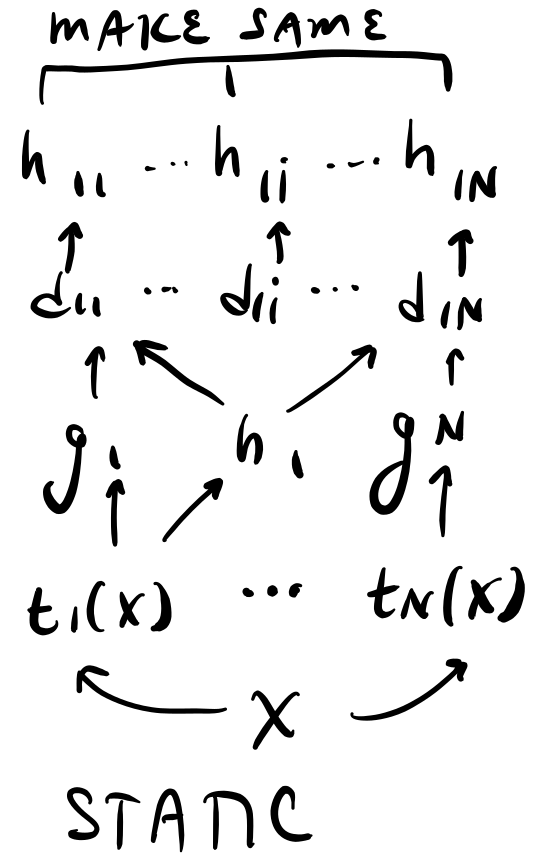 MAKE SAME
h 11 ... h 1i ... h 1N
d11 ... d1i ... d1N
g1 h1 gN
t1(x) ... tN(x)
x
STATIC